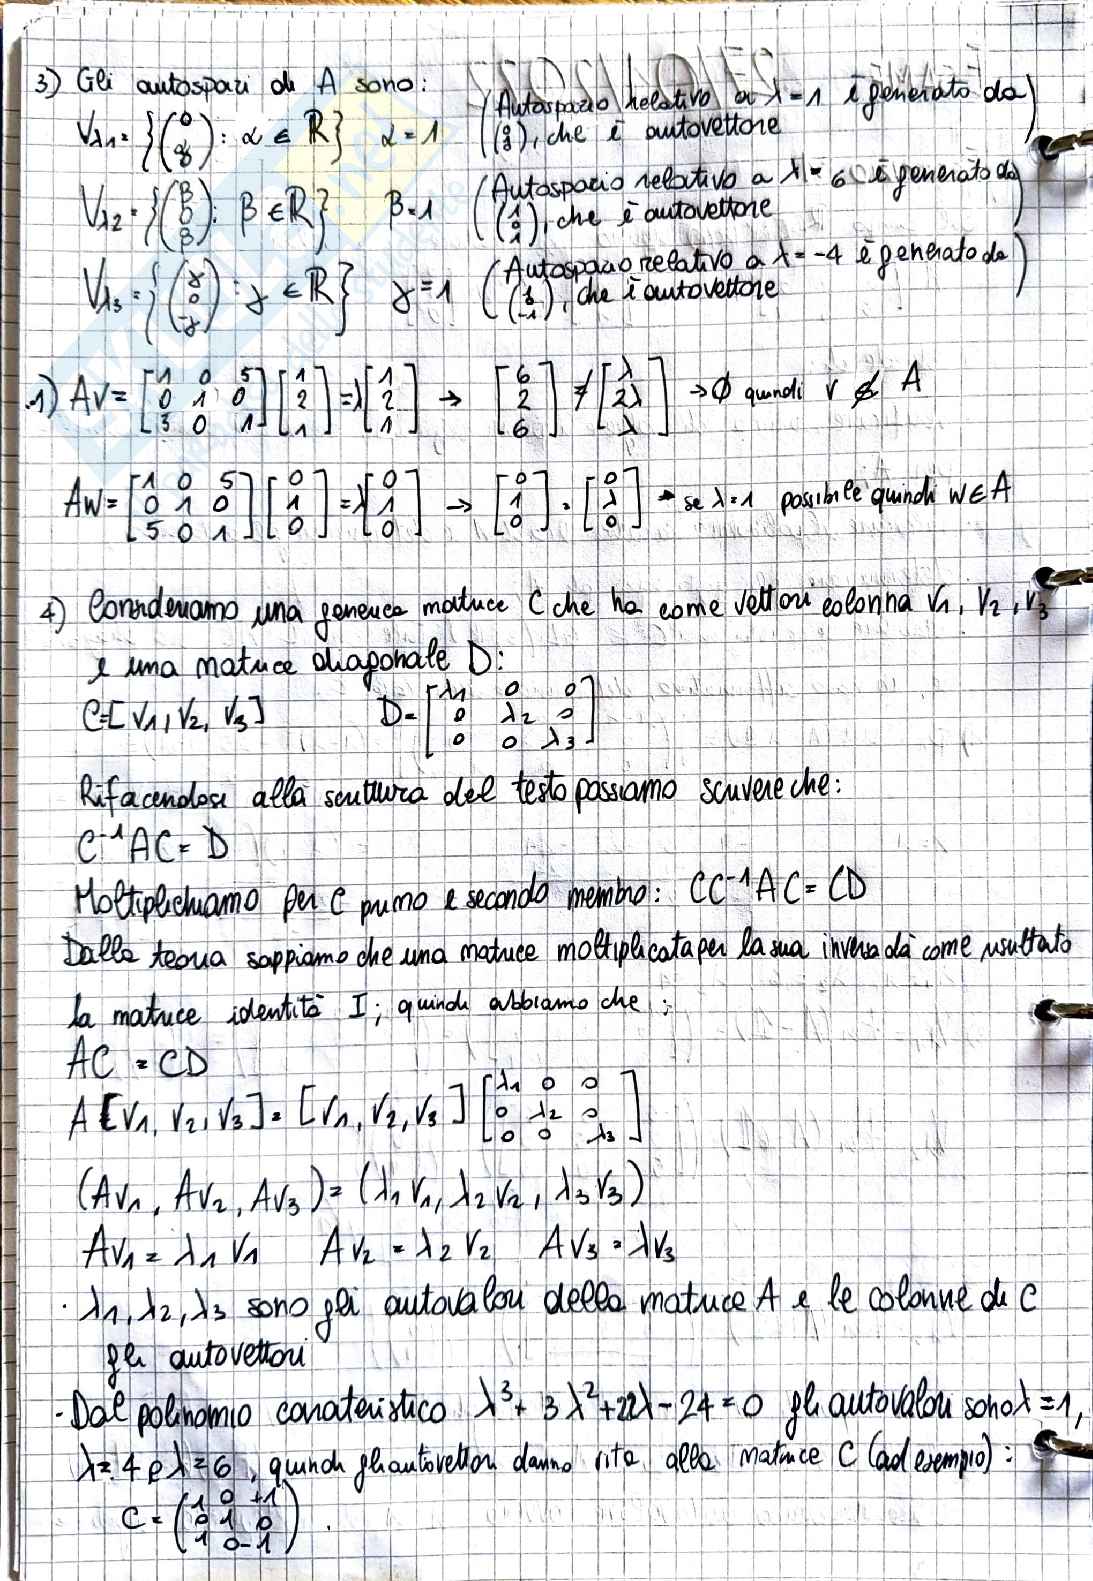 3) Gli autospazi di A sono:
V_λ1 = {(0 α 0) : α ∈ ℝ} α = 1 (Autospazio relativo a λ = 1 è generato da
che è autovettore)
V_λ2 = {(β 0 β) : β ∈ ℝ} β = 1 (Autospazio relativo a λ = 6 è generato da
(1 0 1), che è autovettore)
V_λ3 = {(γ 0 -γ) : γ ∈ ℝ} γ = 1 (Autospazio relativo a λ = -4 è generato da
che è autovettore)
1) Av = [1 0 5; 0 1 0; 3 0 1] [1; 2; 1] = λ [1; 2; 1] → [6; 2; 6] ≠ [λ; 2λ; λ] → ∅ quindi v ∉ A
Aw = [1 0 5; 0 1 0; 5 0 1] [0; 1; 0] = λ [0; 1; 0] → [0; 1; 0] = [0; λ; 0] → se λ = 1 possibile quindi w ∈ A
4) Consideriamo una generica matrice C che ha come vettori colonna v1, v2, v3
e una matrice diagonale D:
C = [v1, v2, v3] D = [λ1 0 0; 0 λ2 0; 0 0 λ3]
Rifacendosi alla scrittura del testo possiamo scrivere che:
C⁻¹AC = D
Moltiplichiamo per C primo e secondo membro: CC⁻¹AC = CD
Dalla teoria sappiamo che una matrice moltiplicata per la sua inversa dà come risultato
la matrice identità I; quindi abbiamo che:
AC = CD
A [v1, v2, v3] = [v1, v2, v3] [λ1 0 0; 0 λ2 0; 0 0 λ3]
(Av1, Av2, Av3) = (λ1v1, λ2v2, λ3v3)
Av1 = λ1v1 Av2 = λ2v2 Av3 = λv3
· λ1, λ2, λ3 sono gli autovalori della matrice A e le colonne di C
gli autovettori
- Dal polinomio caratteristico λ³ + 3λ² + 22λ - 24 = 0 gli autovalori sono λ = 1,
λ = 4 e λ = 6, quindi gli autovettori danno vita alla matrice C (ad esempio):
C = (1 0 +1; 0 1 0; 1 0 -1).